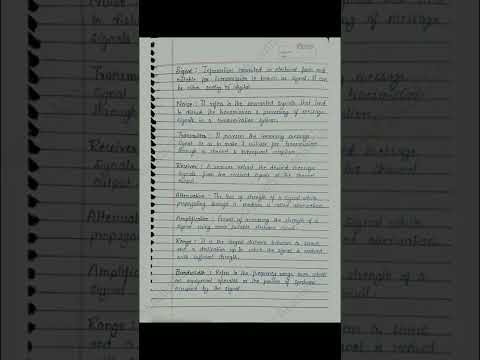 Signal : Information converted in electrical form and
suitable for transmission is known as signal. It can
be either analog or digital.
Noise : It refers to the unwanted signals that tend
to disturb the transmission & processing of message
signals in a communication system.
Transmitter : It processes the incoming message
signal so as to make it suitable for transmission
through a channel & subsequent reception.
Receiver : A receiver extract the desired message
signals from the received signals at the channel
output.
Attenuation : The loss of strength of a signal while
propagating through a medium is called attenuation.
Amplification : Process of increasing the strength of a
signal using some suitable electronic circuit.
Range : It is the largest distance between a source
and a destination up to which the signal is received
with sufficient strength.
Bandwidth : Refers to the frequency range over which
an equipment operates or the portion of spectrum
occupied by the signal.